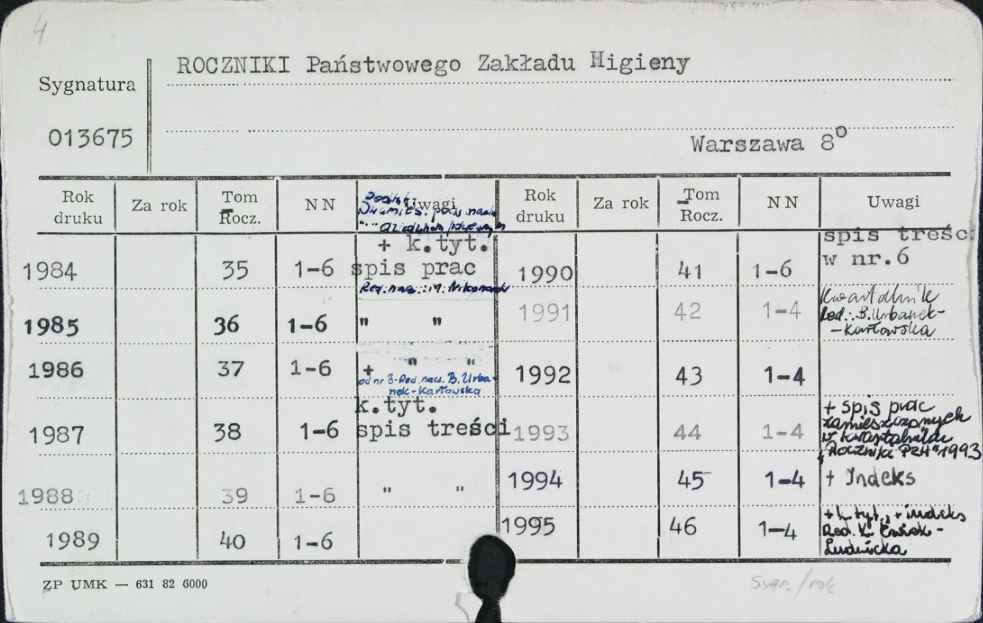 4
ROCZNIKI Państwowego Zakładu Higieny
Sygnatura
013675
Warszawa 8°
Rok druku Za rok Tom Rocz. NN Uwagi Rok druku Za rok Tom Rocz. NN Uwagi
+ k.tyt.
1984 35 1-6 spis prac
1985 36 1-6 " "
1986 37 1-6 + " "
od nr 3-Red. nacz. B. Urba-
nek-Karłowska
k.tyt.
1987 38 1-6 spis treści
1988 39 1-6 " "
1989 40 1-6
spis treśc
1990 41 1-6 w nr.6
1991 42 1-4 Kwartalnik
Red.: B. Urbanek-
-Karłowska
1992 43 1-4
1993 44 1-4 + spis prac
zamieszczonych
w kwartalniku
"Roczniki PZH" 1993
1994 45 1-4 + Indeks
1995 46 1-4 + k. tyt., + indeks
Red. K.
Ludwicka
ZP UMK — 631 82 6000